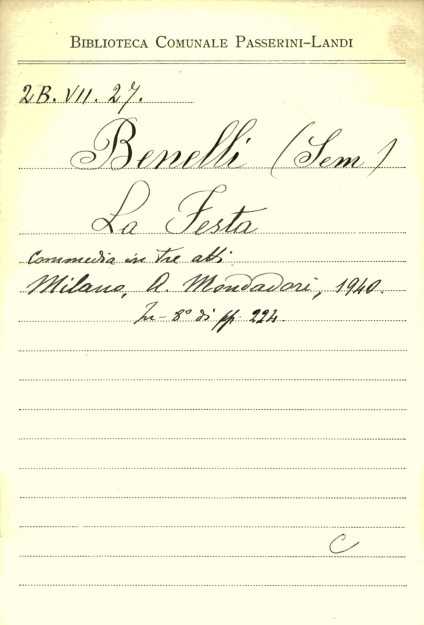 Biblioteca Comunale Passerini-Landi
2B. VII. 27.
Benelli (Sem)
La Festa
Commedia in tre atti
Milano, A. Mondadori, 1940.
In-8° di pp. 224.
C